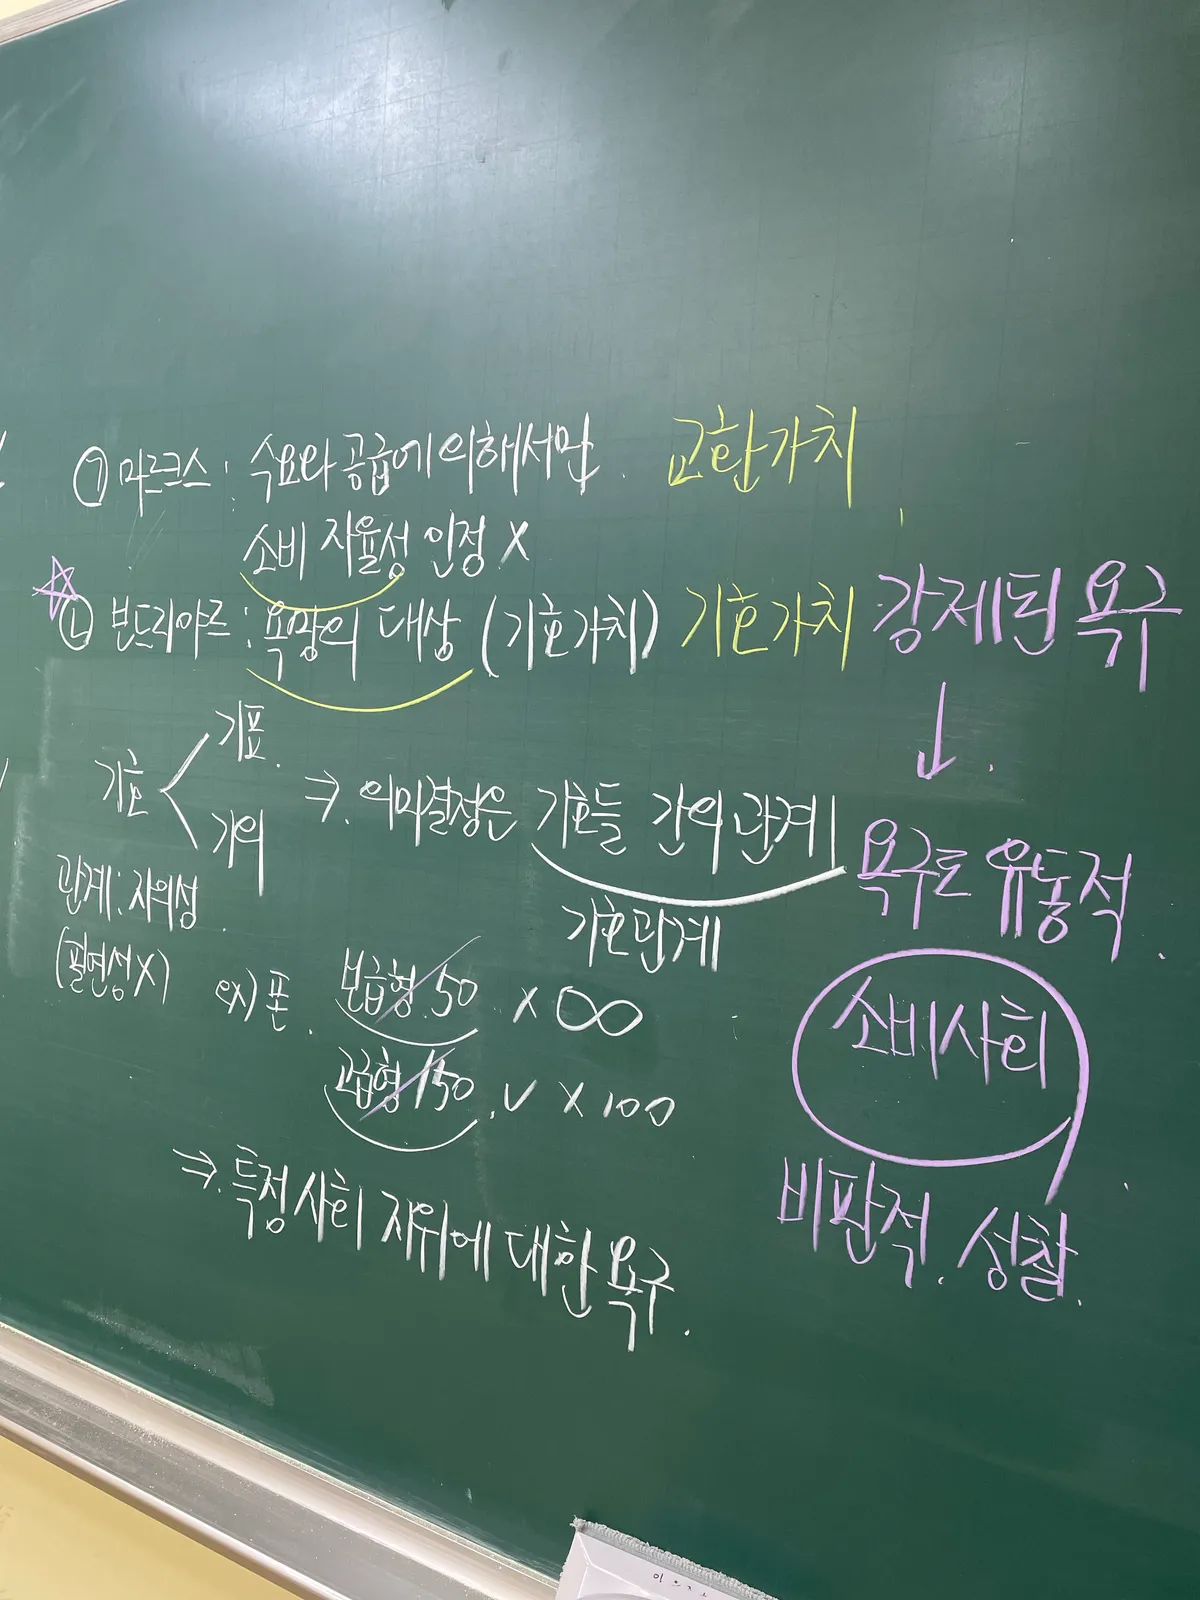 ㉠ 마르크스 : 수요와 공급에 의해서만. 교환가치
소비 자율성 인정 X
☆
㉡ 보드리야르 : 욕망의 대상 (기호가치) 기호가치 강제된 욕구
↓
기호 < 기표.
기의
⇒. 의미결정은 기호들 간의 관계
기호관계
욕구도 유동적.
관계 : 자의성.
(필연성X)
ex) 폰. 보급형 50 × ∞
고급형 150. ∨ × 100
⇒. 특정 사회 지위에 대한 욕구.
소비사회
비판적. 성찰.